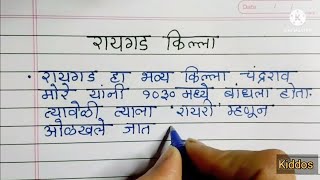 रायगड किल्ला
• रायगड हा भव्य किल्ला चंद्रराव
मोरे यांनी १०३० मध्ये बांधला होता.
त्यावेळी त्याला 'रायरी' म्हणून
ओळखले जात
KINEMASTER
Kiddos